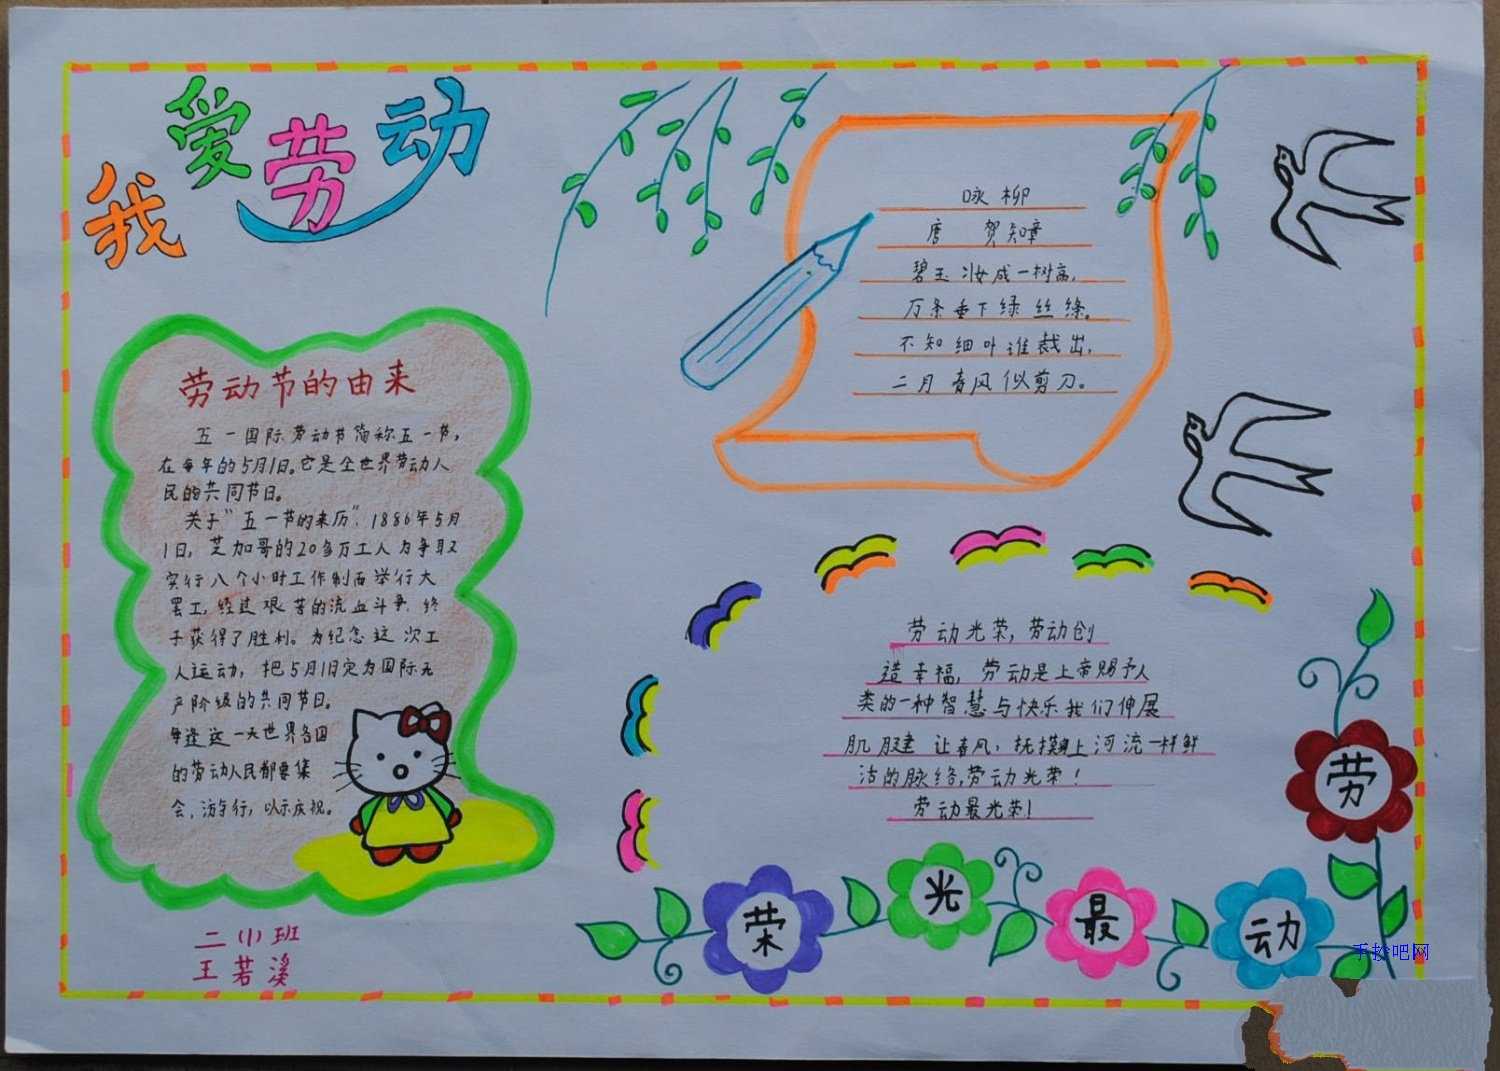 我爱劳动
劳动节的由来
五一国际劳动节简称五一节,
在每年的5月1日。它是全世界劳动人
民的共同节日。
关于“五一节的来历”.1886年5月
1日,芝加哥的20多万工人为争取
实行八个小时工作制而举行大
罢工,经过艰苦的流血斗争,终
于获得了胜利。为纪念这次工
人运动,把5月1日定为国际无
产阶级的共同节日。
每逢这一天世界各国
的劳动人民都要集
会,游行,以示庆祝。
二(1)班
王若溪
咏柳
唐 贺知章
碧玉妆成一树高,
万条垂下绿丝绦。
不知细叶谁裁出,
二月春风似剪刀。
劳动光荣,劳动创
造幸福,劳动是上帝赐予人
类的一种智慧与快乐我们伸展
肌腱让春风,抚摸上河流一样鲜
活的脉络,劳动光荣!
劳动最光荣!
劳动最光荣
手抄吧网